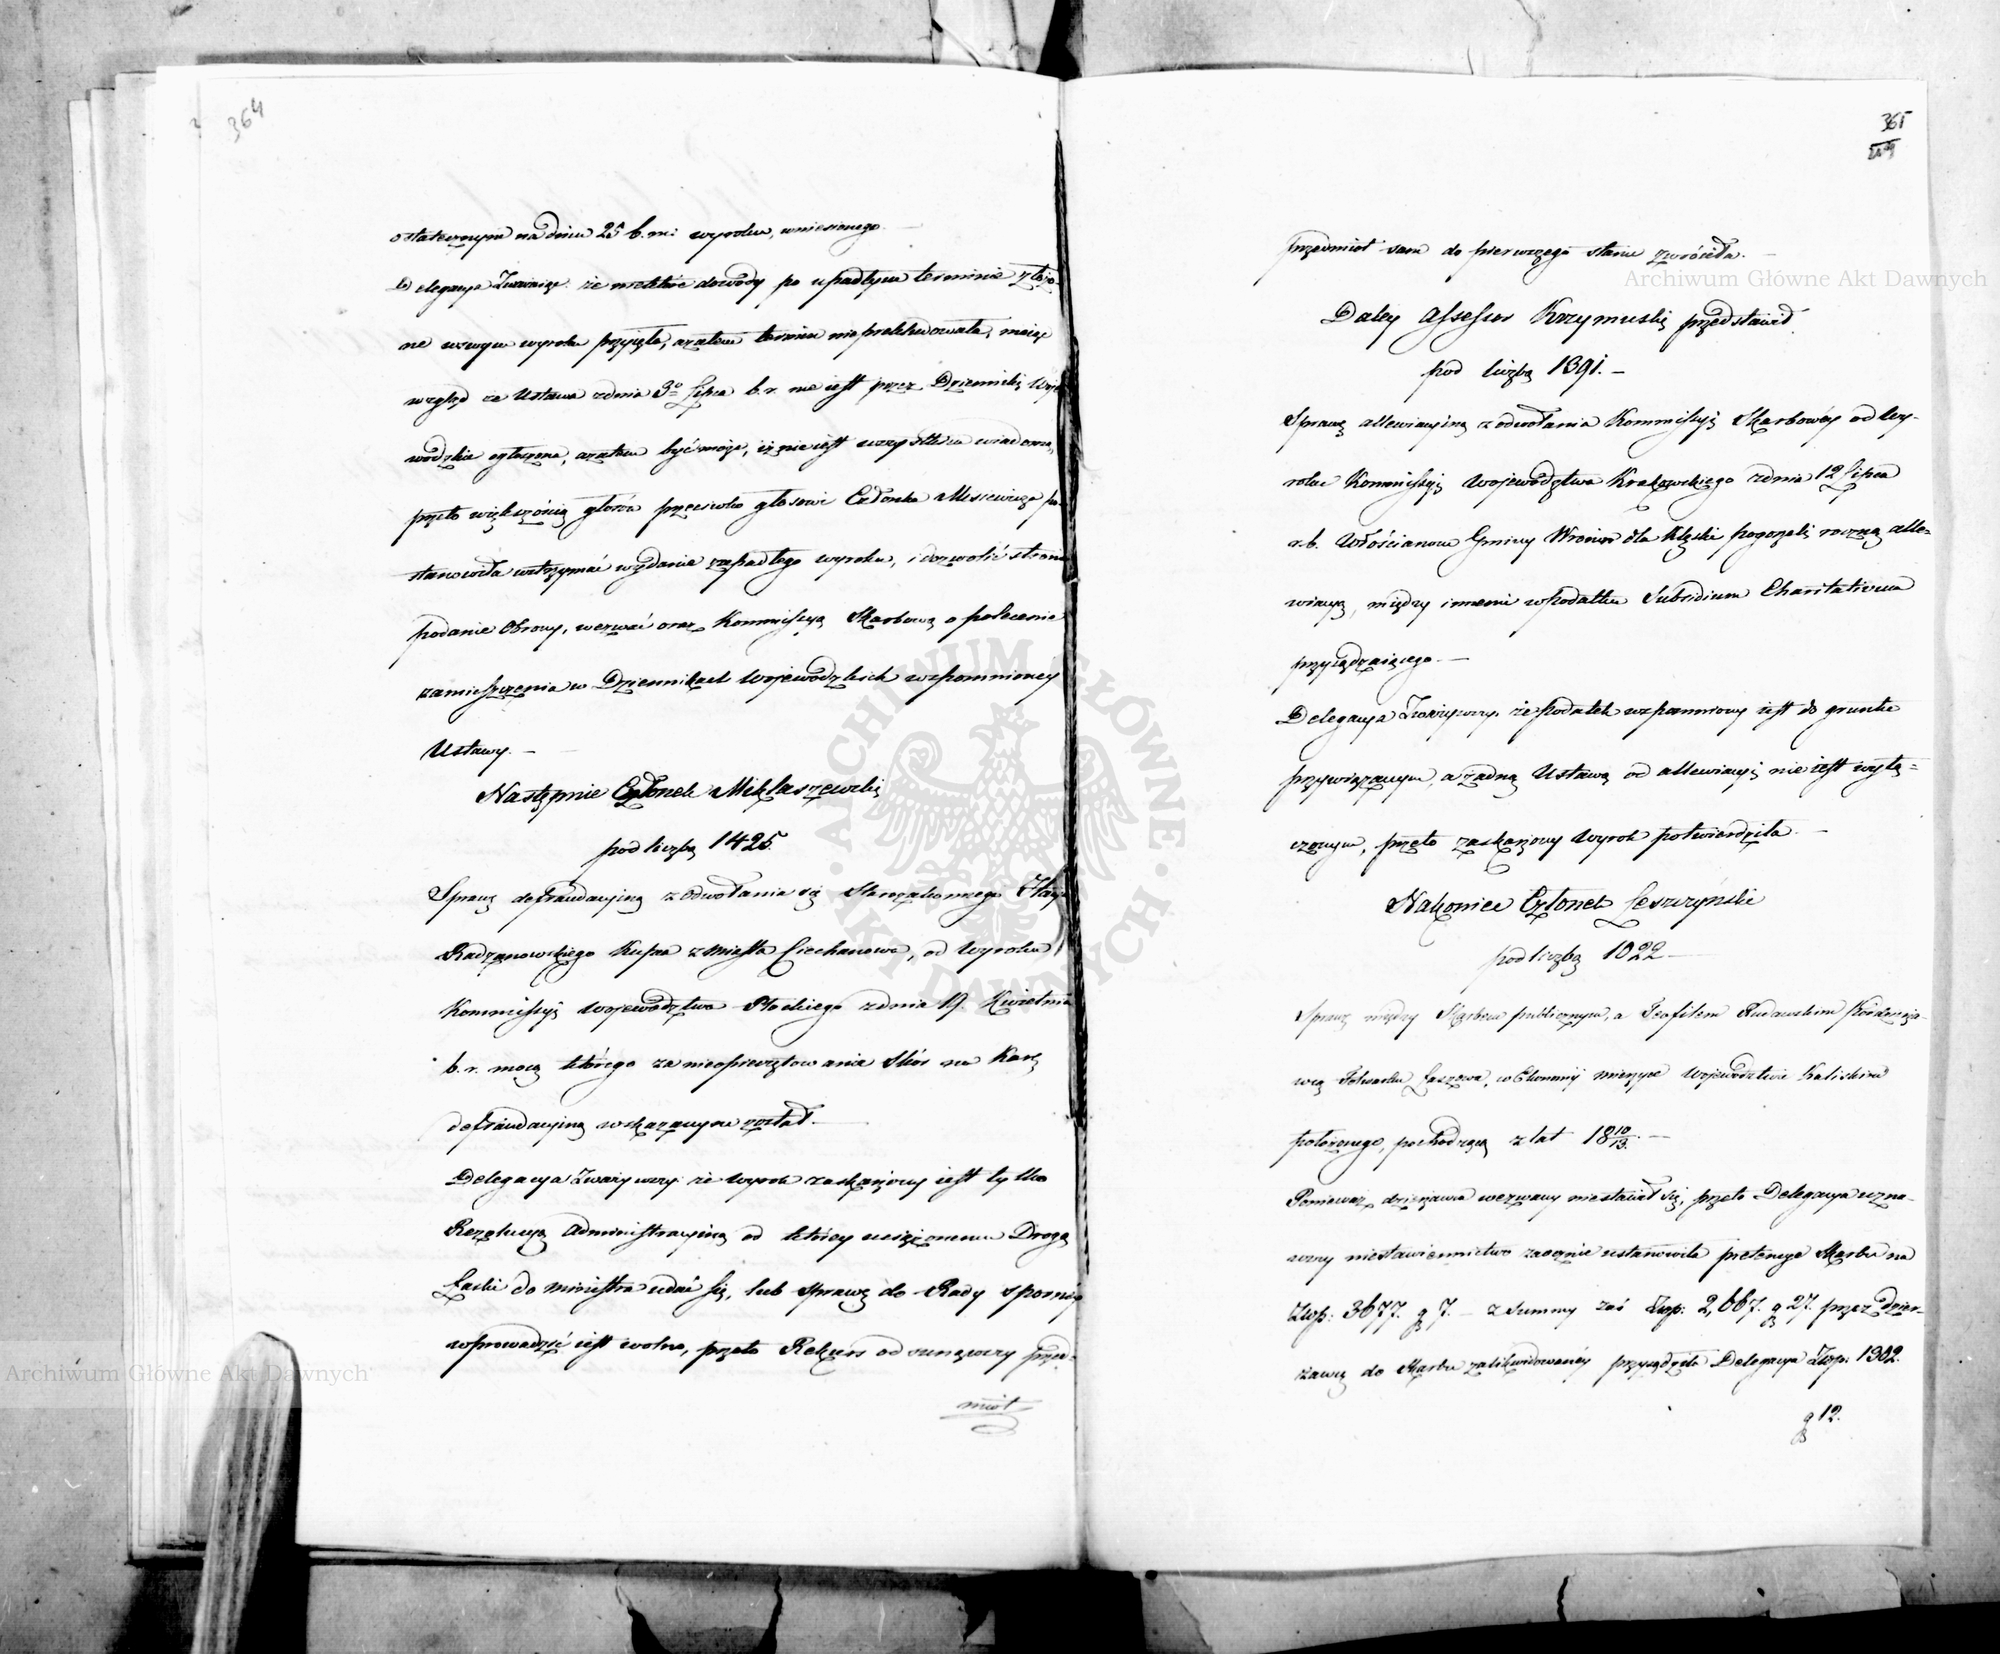 364
ostatecznym na dniu 25 b. m: wyroku, wniesionego.
Delegacya Zważaiąc że niektóre dowody po upadłym terminie złożo-
ne wzwym wyroku przyięła, azatem terminu nieprekludowała, maiąc
wzgląd ze Ustawa zdnia 3º Lipca b. r. nie iest przez Dzienniki Woje
wodzkie ogłoszona, azatem być może, iż nie iest wszystkim wiadoma,
przeto większością głosów przeciwko głosowi Członka Misiewicza po-
stanowiła wstrzymać wydanie zapadłego wyroku, i dozwolić stronie
podanie Obrony, wezwać oraz Kommissyą Skarbową o polecenie
zamieszczenia w Dziennikach Wojewódzkich wspomnioney
Ustawy. —
Następnie Członek Miklaszewski
pod liczbą 1425.
Sprawę defraudacyiną z odwołania się Starozakonnego
Radzanowskiego Kupca z Miasta Ciechanowa, od Wyroku
Kommissyi Województwa Płockiego zdnia 19. Kwietnia
b. r. mocą którego za nieopieczętowanie Skór na Karę
defraudacyiną wskazanym został. —
Delegacya Zważywszy że wyrok zaskarżony iest tylko
Rezolucyą Administracyiną od którey uciążonemu Drogą
Łaski do Ministra udać się, lub Sprawę do Rady sporną
wprowadzić iest wolno, przeto Rekurs odsunąwszy przed-
miot
365
przedmiot sam do pierwszego stanu zwróciła. —
Daley Assessor Krzymuski przedstawił
pod liczbą 1391. —
Sprawę allewiacyiną z odwołania Kommissyi Skarbowéy od Wy-
roku Kommissyi Województwa Krakowskiego zdnia 12 Lipca
r. b. Włościanom Gminy Wronin dla Klęski pogorzeli roczną alle=
wiacyą, między innemi w Podatku Subsidium Charitativum
przysądzaiącego. —
Delegacya Zważywszy, że Podatek wspomniony iest do gruntu
przywiązanym, a żadną Ustawą od allewiacyi nie iest wyłą=
czonym, przeto zaskarżony Wyrok potwierdziła. —
Nakoniec Członek Leszczyński
pod liczbą 1022 —
Sprawę między Skarbem publicznym, a Teofilem Rudawskim
wcą Folwarku Łaszewa, w Ekonomij mienyce Województwie Kaliskim
położonego, pochodzącą z lat 18 10/13. —
Ponieważ dzierżawca wezwany niestawił się, przeto Delegacya uzna-
wszy niestawiennictwo zaocznie ustanowiła pretensye Skarbu na
Złp: 3677. g 7. — z Summy zaś Złp: 2,667. g 27. przez dzier-
żawcę do Skarbu zalikwidowanéy przysądziła Delegacya Złp. 1302.
g 12.
Archiwum Główne Akt Dawnych
Archiwum Główne Akt Dawnych
ARCHIWUM GŁÓWNE
AKT DAWNYCH